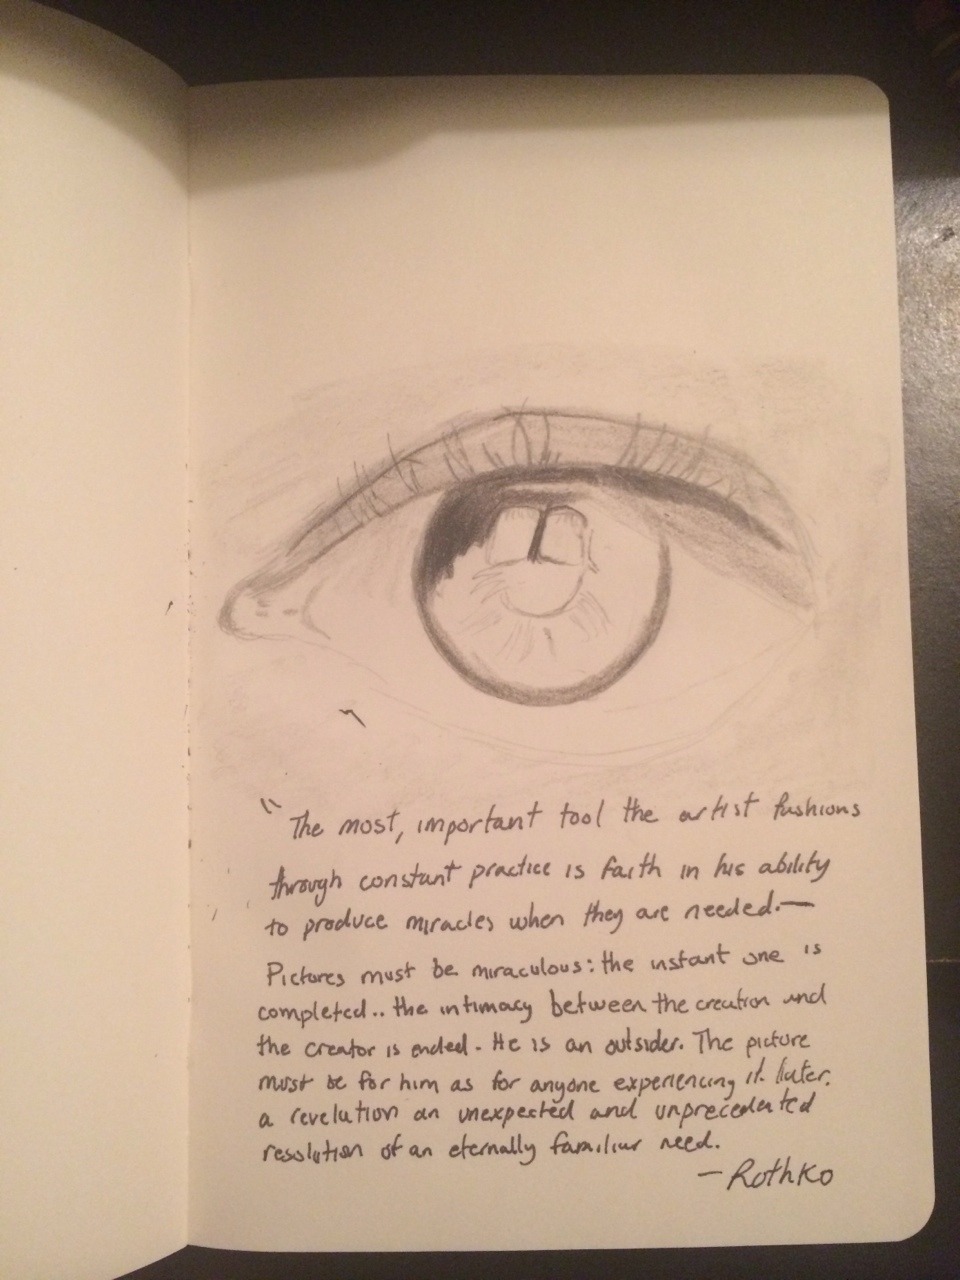 "The most, important tool the artist fashions
through constant practice is faith in his ability
to produce miracles when they are needed.—
Pictures must be miraculous: the instant one is
completed.. the intimacy between the creation and
the creator is ended. He is an outsider. The picture
must be for him as for anyone experiencing it later.
a revelution an unexpected and unprecedented
resolution of an eternally familiar need.
— Rothko